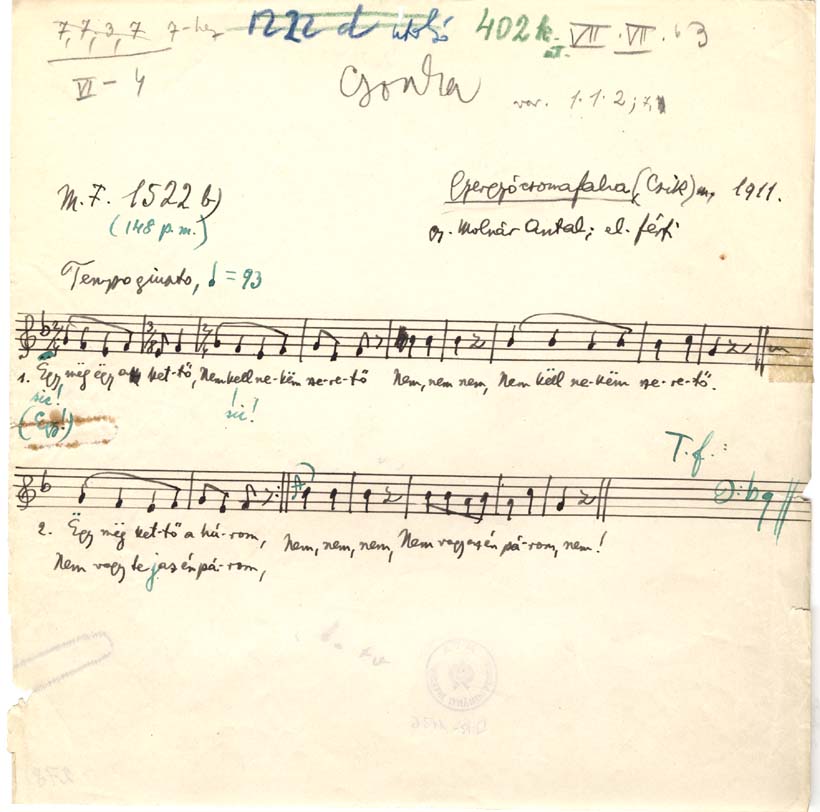 7, 7, 3, 7 7-hez 1222 d utolsó 402 k. VII. VII. 63
VI – 4
Csonka
var. 1.1.2; 7,
M.F. 1522 b)
Gyergyócsomafalva (Csik) m, 1911.
(148 p.m.)
gy. Molnár Antal; el. férfi
Tempo giusto, = 93
1. Ëgy még ëgy a ket-tő, Nem kell ne-këm sze-re-tő Nem, nem nem, Nem këll ne-këm sze-re-tő.
sic! sic!
(Egy!)
T.f.:
2. Ëgy még ket-tő a há-rom, Nem, nem, nem, Nem vagy az én pá-rom, nem!
Nem vagy te jaz én pá-rom,